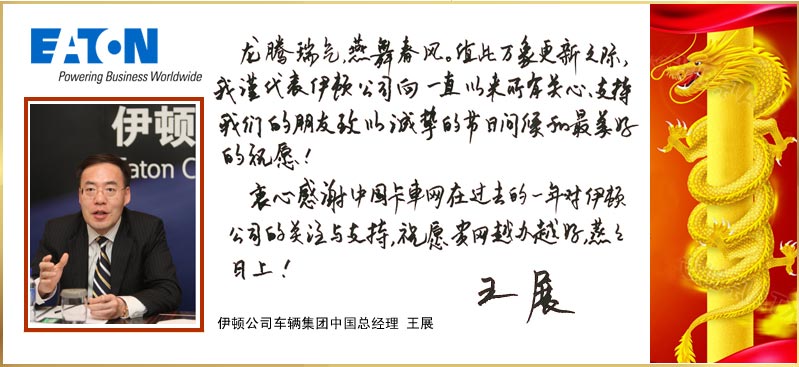 EATON
Powering Business Worldwide
伊顿
Eaton C
龙腾瑞气,燕舞春风。值此万象更新之际,
我谨代表伊顿公司向一直以来所有关心、支持
我们的朋友致以诚挚的节日问候和最美好
的祝愿!
衷心感谢中国卡車网在过去的一年对伊顿
公司的关注与支持,祝愿贵网越办越好,蒸蒸
日上!
王展
伊顿公司车辆集团中国总经理 王展